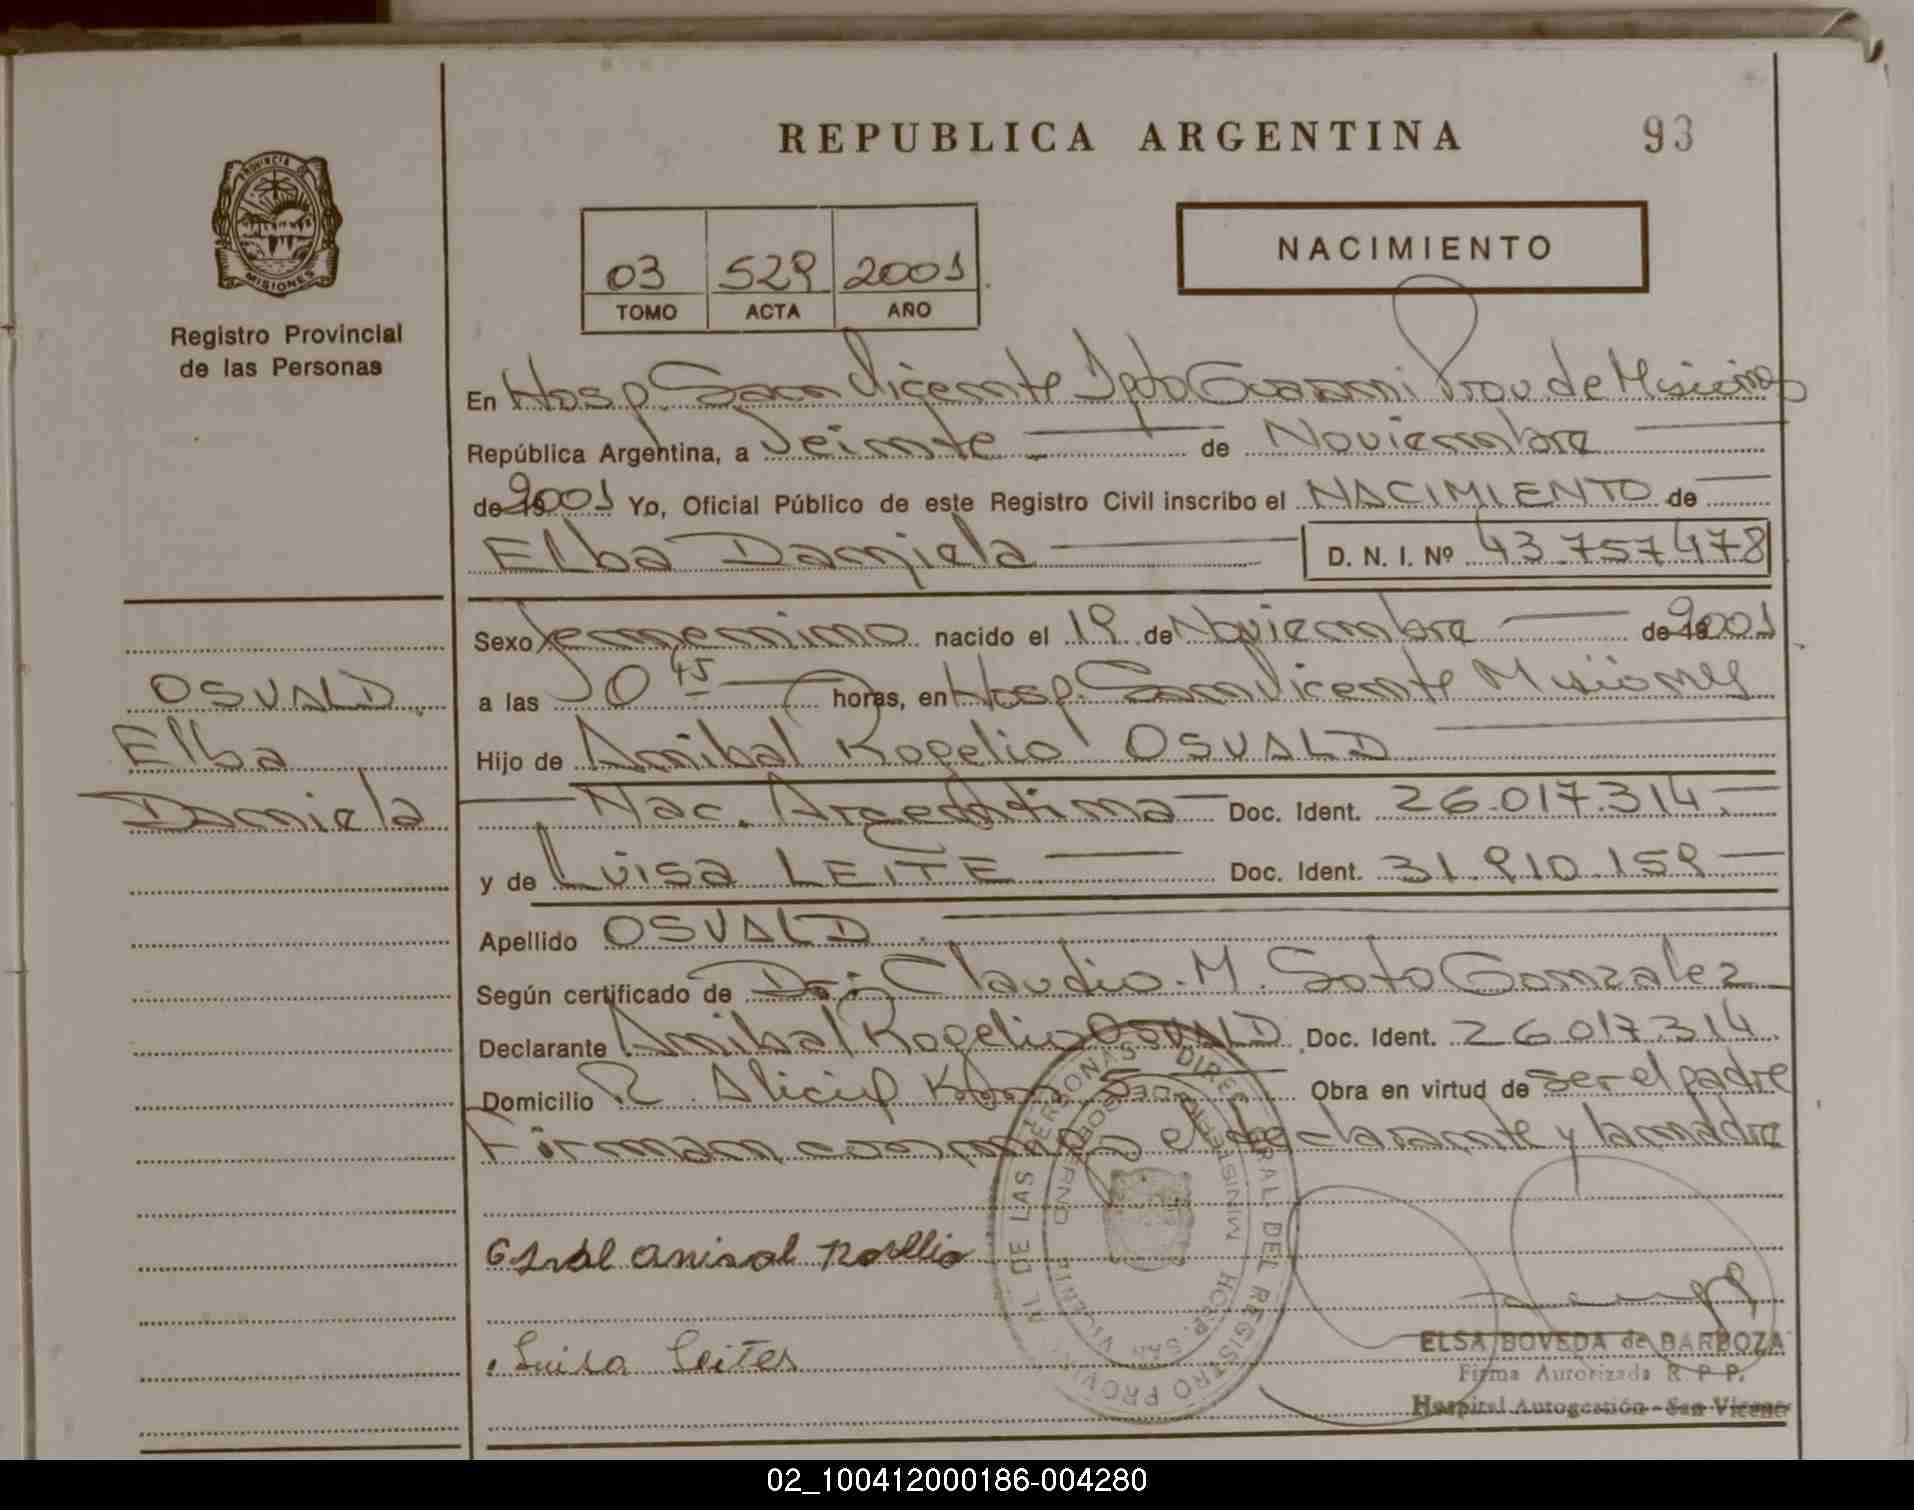 REPUBLICA ARGENTINA
93
PROVINCIA DE
MISIONES
Registro Provincial
de las Personas
03 529 2001
TOMO ACTA AÑO
NACIMIENTO
En Hosp. San Vicente Dpto Guarani Prov de Misiones
República Argentina, a Veinte de Noviembre
de 2001 Yo, Oficial Público de este Registro Civil inscribo el NACIMIENTO de
Elba Daniela D. N. I. Nº 43.757.478
Sexo femenino nacido el 19 de Noviembre de 2001
a las 0 45 horas, en Hosp. San Vicente Misiones
Hijo de Anibal Rogelio OSVALD
Nac. Argentina Doc. Ident. 26.017.314
y de Luisa LEITE Doc. Ident. 31.910.159
Apellido OSVALD
Según certificado de Dr. Claudio M. Soto Gonzalez
Declarante Anibal Rogelio OSVALD Doc. Ident. 26.017.314
Domicilio P. Alicia Km 5 Obra en virtud de ser el padre
Firman conmigo el declarante y la madre
OSVALD
Elba
Daniela
Luisa Leites
DIRECCION GENERAL DEL REGISTRO PROVINCIAL DE LAS PERSONAS
MINISTERIO DE GOBIERNO
HOSP. SAN VICENTE
ELSA BOVEDA de BARBOZA
Firma Autorizada R. P. P.
Hospital Autogestión - San Vicente
02_100412000186-004280